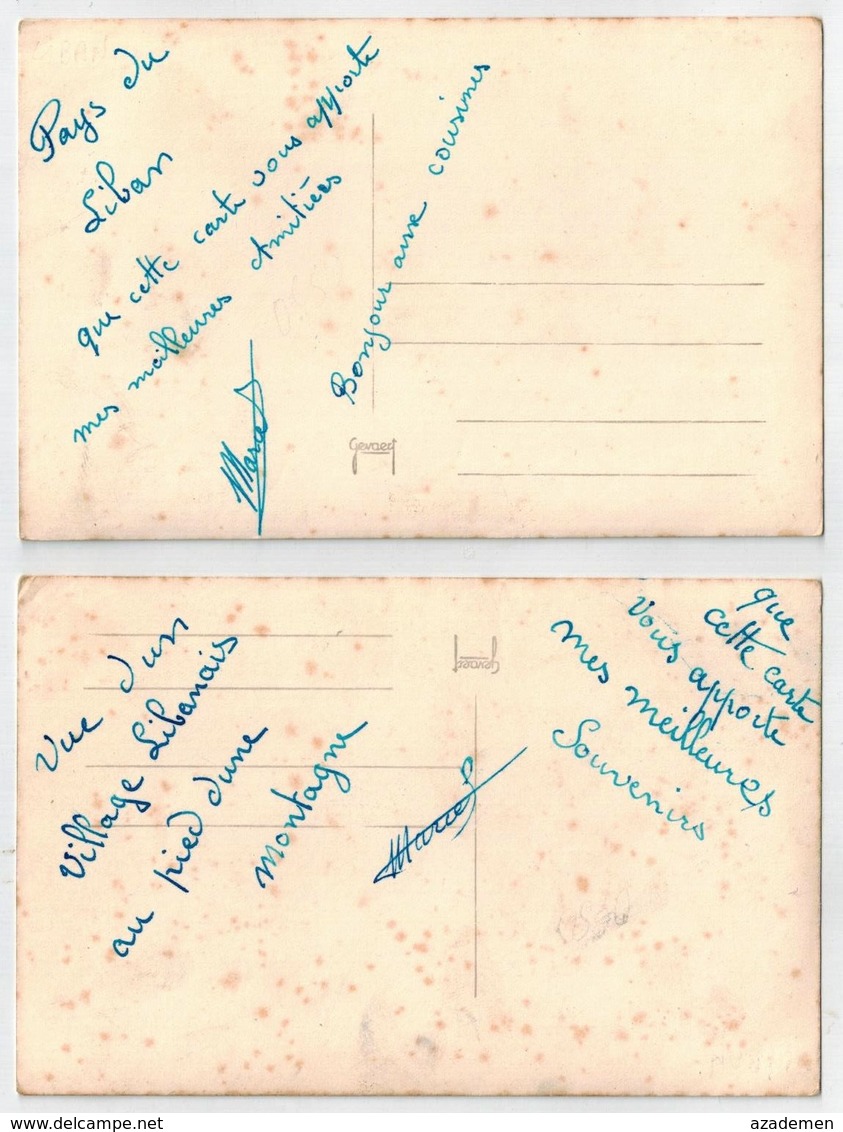 Pays du
Liban
que cette carte vous apporte
mes meilleures Amitiées
Marcel
Bonjour aux cousines
Gevaert
Vue d'un
Village Libanais
au pied d'une
montagne
Marcel
Gevaert
que
cette carte
vous apporte
mes meilleures
Souvenirs
www.delcampe.net
azademen